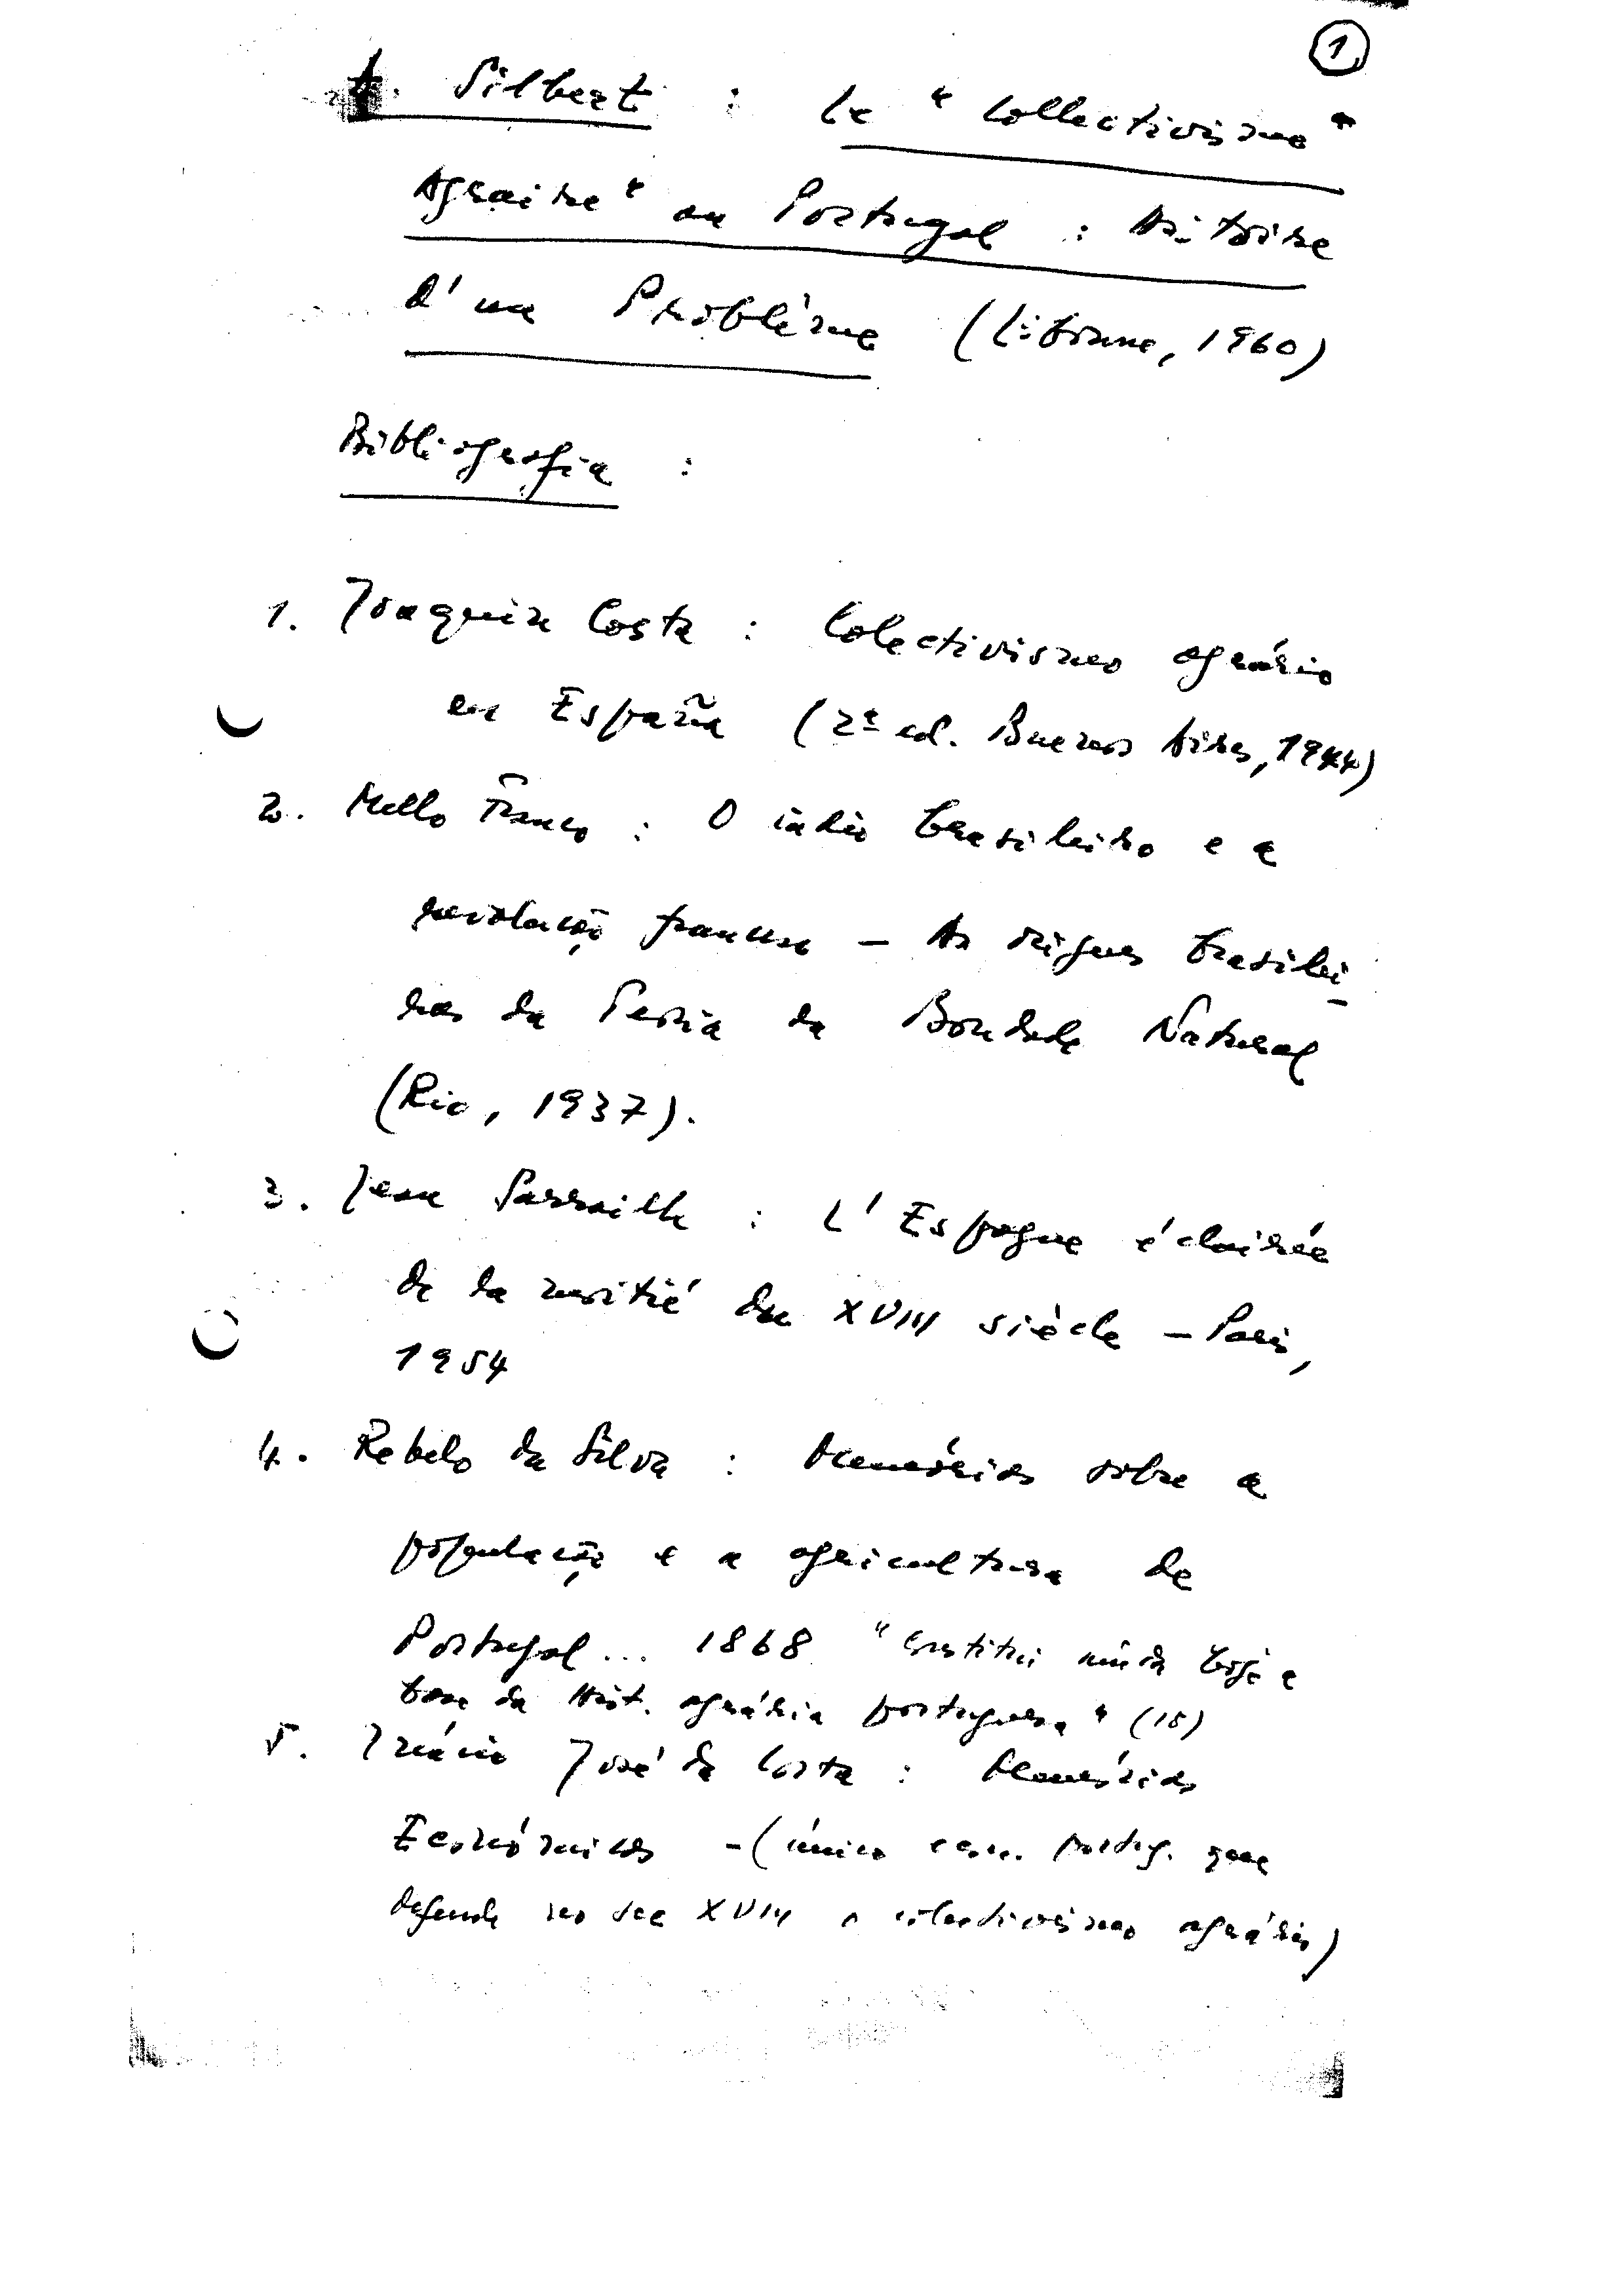 1
A. Silbert : Le "Collectivisme"
Agraire" au Portugal : Histoire
d'un Problème (Lisbonne, 1960)
Bibliografia :
1. Joaquin Costa : Colectivismo agrário
en España (2ª ed. Buenos Aires, 1944)
2. Mello Franco : O indio brasileiro e a
revolução francesa – As origens brasilei-
ras da Teoria da Bondade Natural
(Rio, 1937).
3. Jean Sarrailh : L'Espagne éclairée
de la moitié du XVIII siècle – Paris,
1954
4. Rebelo da Silva : Memórias sobre a
população e a agricultura de
Portugal... 1868 "Constitui ainda hoje a
base da Hist. agrária portuguesa" (15)
5. Inácio José da Costa : Memórias
Económicas – (único econ. portug. que
defende no sec XVIII o colectivismo agrário)